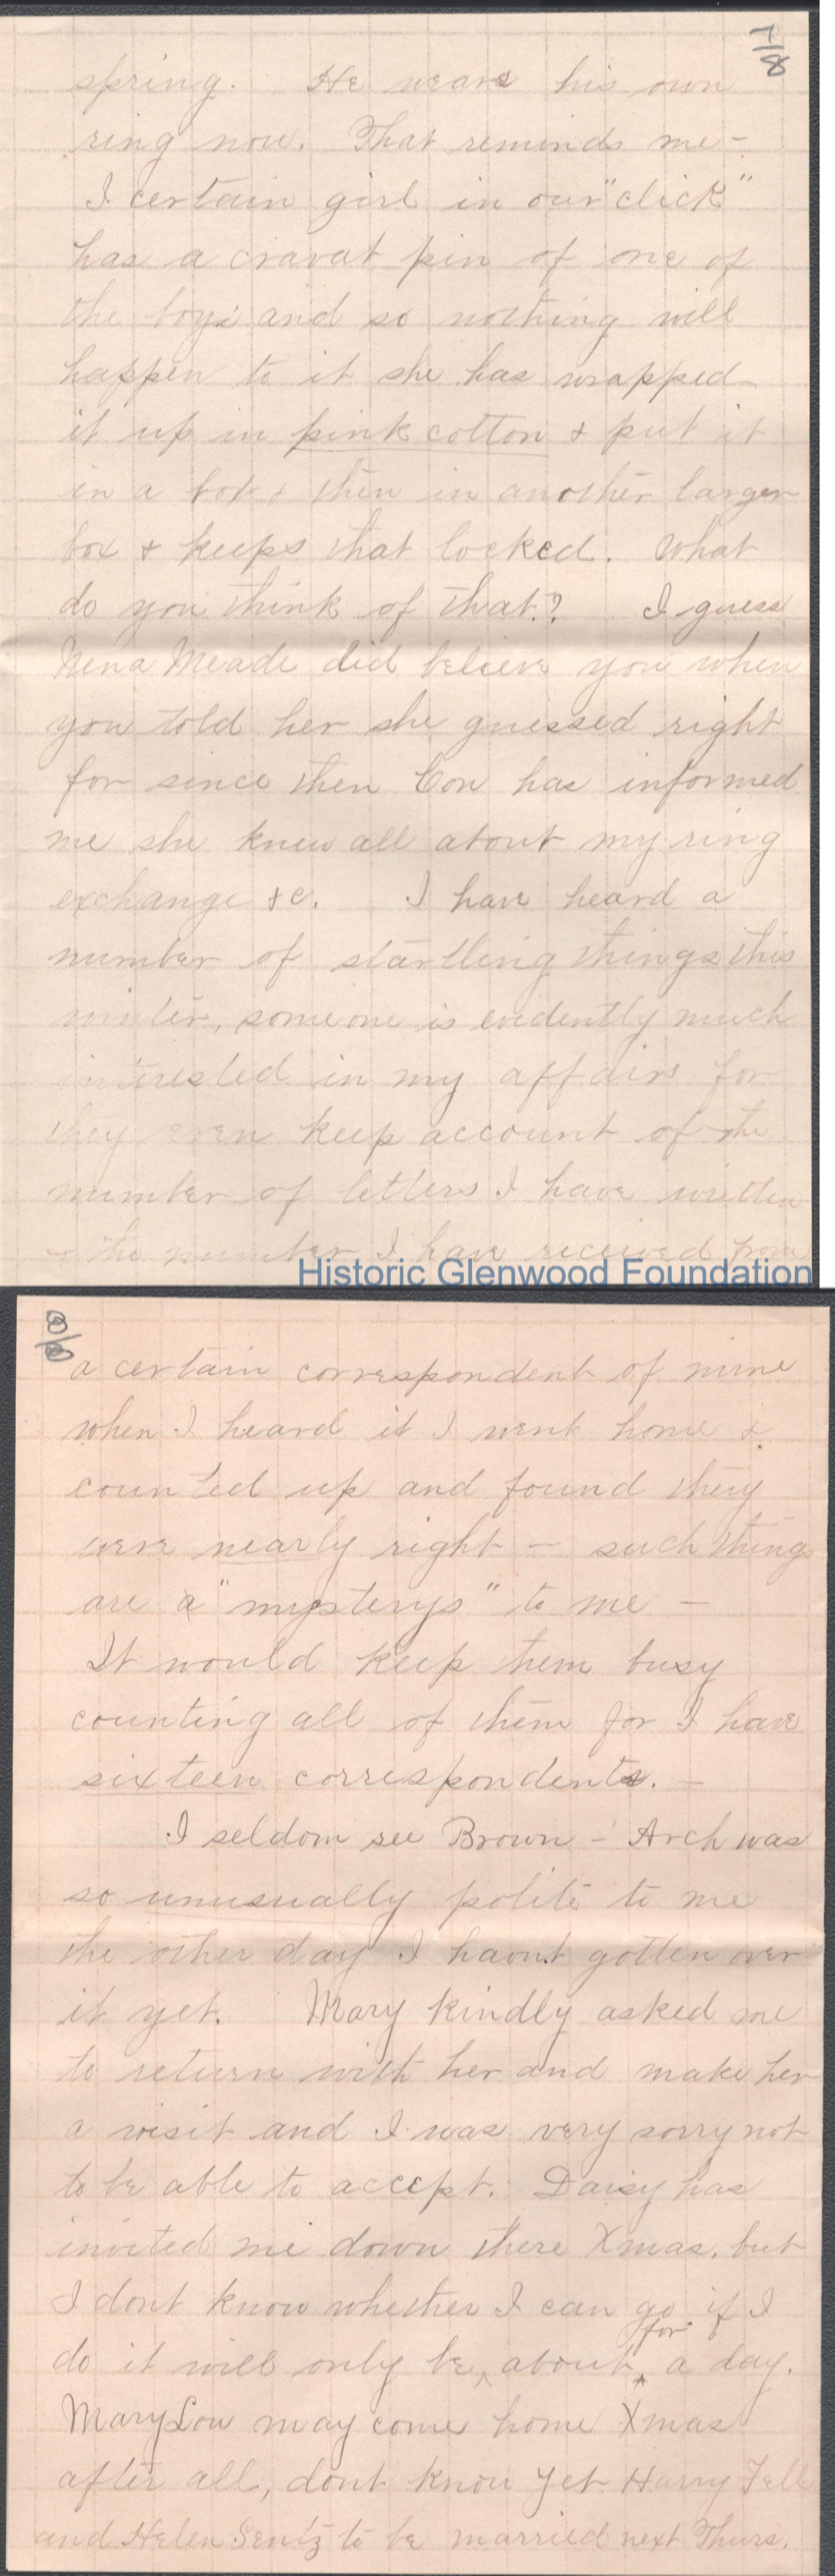 7/8
spring. He wears his own
ring now. That reminds me -
I certain girl in our "click"
has a cravat pin of one of
the boys and so nothing will
happen to it she has wrapped
it up in pink cotton & put it
in a box & then in another larger
box & keeps that locked. What
do you think of that? I guess
Nena Meade did believe you when
you told her she guessed right
for since then Con has informed
me she knew all about my ring
exchange &c. I have heard a
number of startling things this
winter, someone is evidently much
interested in my affairs for
they even keep account of the
number of letters I have written
& the number I have received from
Historic Glenwood Foundation
8/8
a certain correspondent of mine
when I heard it I went home &
counted up and found they
were nearly right - such things
are a "mysterys" to me -
It would keep them busy
counting all of them for I have
sixteen correspondents. -
I seldom see Brown - Arch was
so unusually polite to me
the other day I havnt gotten over
it yet. Mary kindly asked me
to return with her and make her
a visit and I was very sorry not
to be able to accept. Daisy has
invited me down there Xmas. but
I dont know whether I can go if I
do it will only be about for a day.
Mary Lou may come home Xmas
after all, dont know yet. Harry Fell
and Helen Sentz to be married next Thurs.